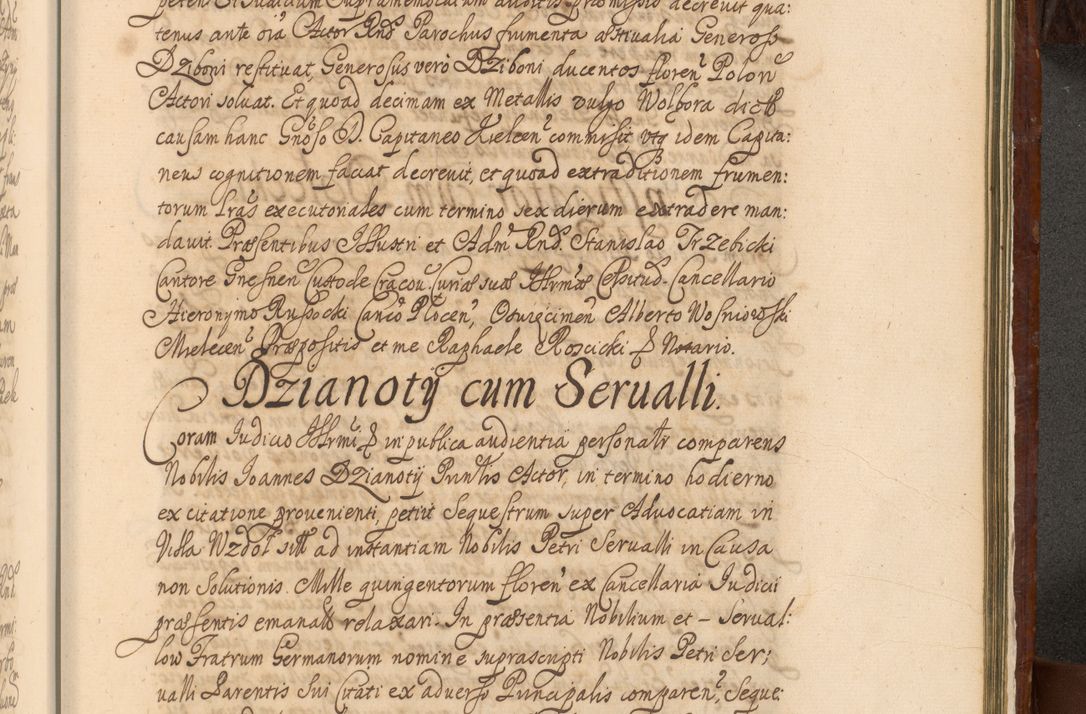 petens Et Judicium Supramemoratum auditis præmissis decrevit qua:
tenus ante oîa Actor Rnds Parochus frumenta æstivalia Generoso
Dziboni restituat, Generosus verò Dziboni ducentos floren Polon
Actori solvat. Et quoad decimam ex Metallis vulgo Wolbora dict
causam hanc Gnôso D. Capitaneo Kielcen commisit utq idem Capita:
neus cognitionem faciat decrevit, et quoad extraditionem frumen:
torum Lras executoriales cum termino sex dierum extradere man:
davit Præsentibus Illustri et Adm Rnd Stanislao Trzebicki
Cantore Gnesnen Custode Cracou. Curiæ suæ Illrmæ Celsitud. Cancellario
Hieronymo Russocki Canco Plocen, Alberto Wosniowski
Mielecen Præposito et me Raphaele Roscicki Notario.
Dzianotÿ cum Serualli.
Coram Judicio Illrmi in publica audientia personalr comparens
Nobilis Joannes Dzianotÿ Prinlis Actor, in termino hodierno
ex citatione provenienti, petiit Sequestrum super Advocatiam in
Villa Wzdoł sitt ad instantiam Nobilis Petri Serualli in Causa
non Solutionis Mille quingentorum floren ex Cancellaria Judicii
præsentis emanat relaxari. In præsentia Nobilium et – Serual:
low Fratrum Germanorum nomine suprascripti Nobilis Petri Ser;
ualli Parentis Sui Citati ex adverso Principalis comparen, Seque: